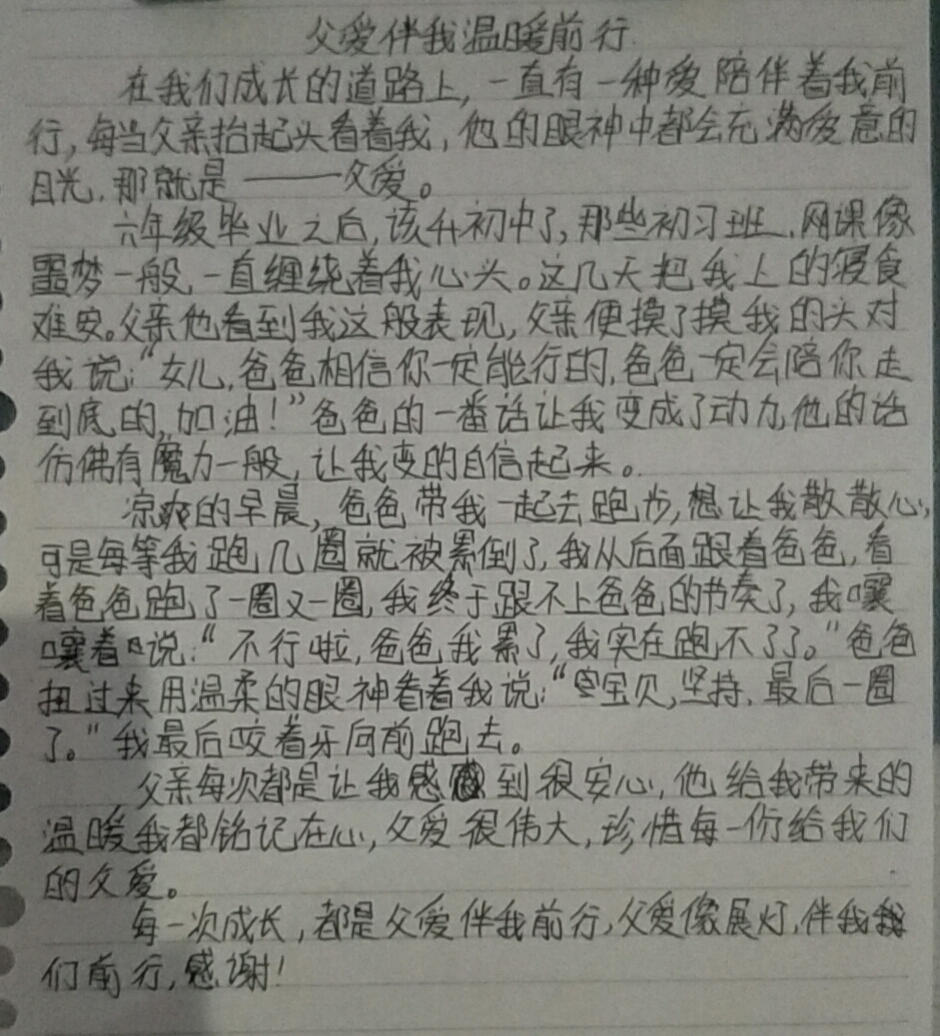 父爱伴我温暖前行
在我们成长的道路上,一直有一种爱陪伴着我前
行,每当父亲抬起头看着我,他的眼神中都会充满爱意的
目光,那就是——父爱。
六年级毕业之后,该升初中了,那些初习班、网课像
噩梦一般,一直缠绕着我心头。这几天把我上的寝食
难安。父亲他看到我这般表现,父亲便摸了摸我的头对
我说:“女儿,爸爸相信你一定能行的,爸爸一定会陪你走
到底的,加油!”爸爸的一番话让我变成了动力,他的话
仿佛有魔力一般,让我变的自信起来。
凉爽的早晨,爸爸带我一起去跑步,想让我散散心,
可是每等我跑几圈就被累倒了,我从后面跟着爸爸,看
着爸爸跑了一圈又一圈,我终于跟不上爸爸的节奏了,我嚷
嚷着说:“不行啦,爸爸我累了,我实在跑不了了。”爸爸
扭过来用温柔的眼神看着我说:“宝贝,坚持、最后一圈
了。”我最后咬着牙向前跑去。
父亲每次都是让我感到很安心,他给我带来的
温暖我都铭记在心,父爱很伟大,珍惜每一份给我们
的父爱。
每一次成长,都是父爱伴我前行,父爱像展灯,伴我
们前行,感谢!